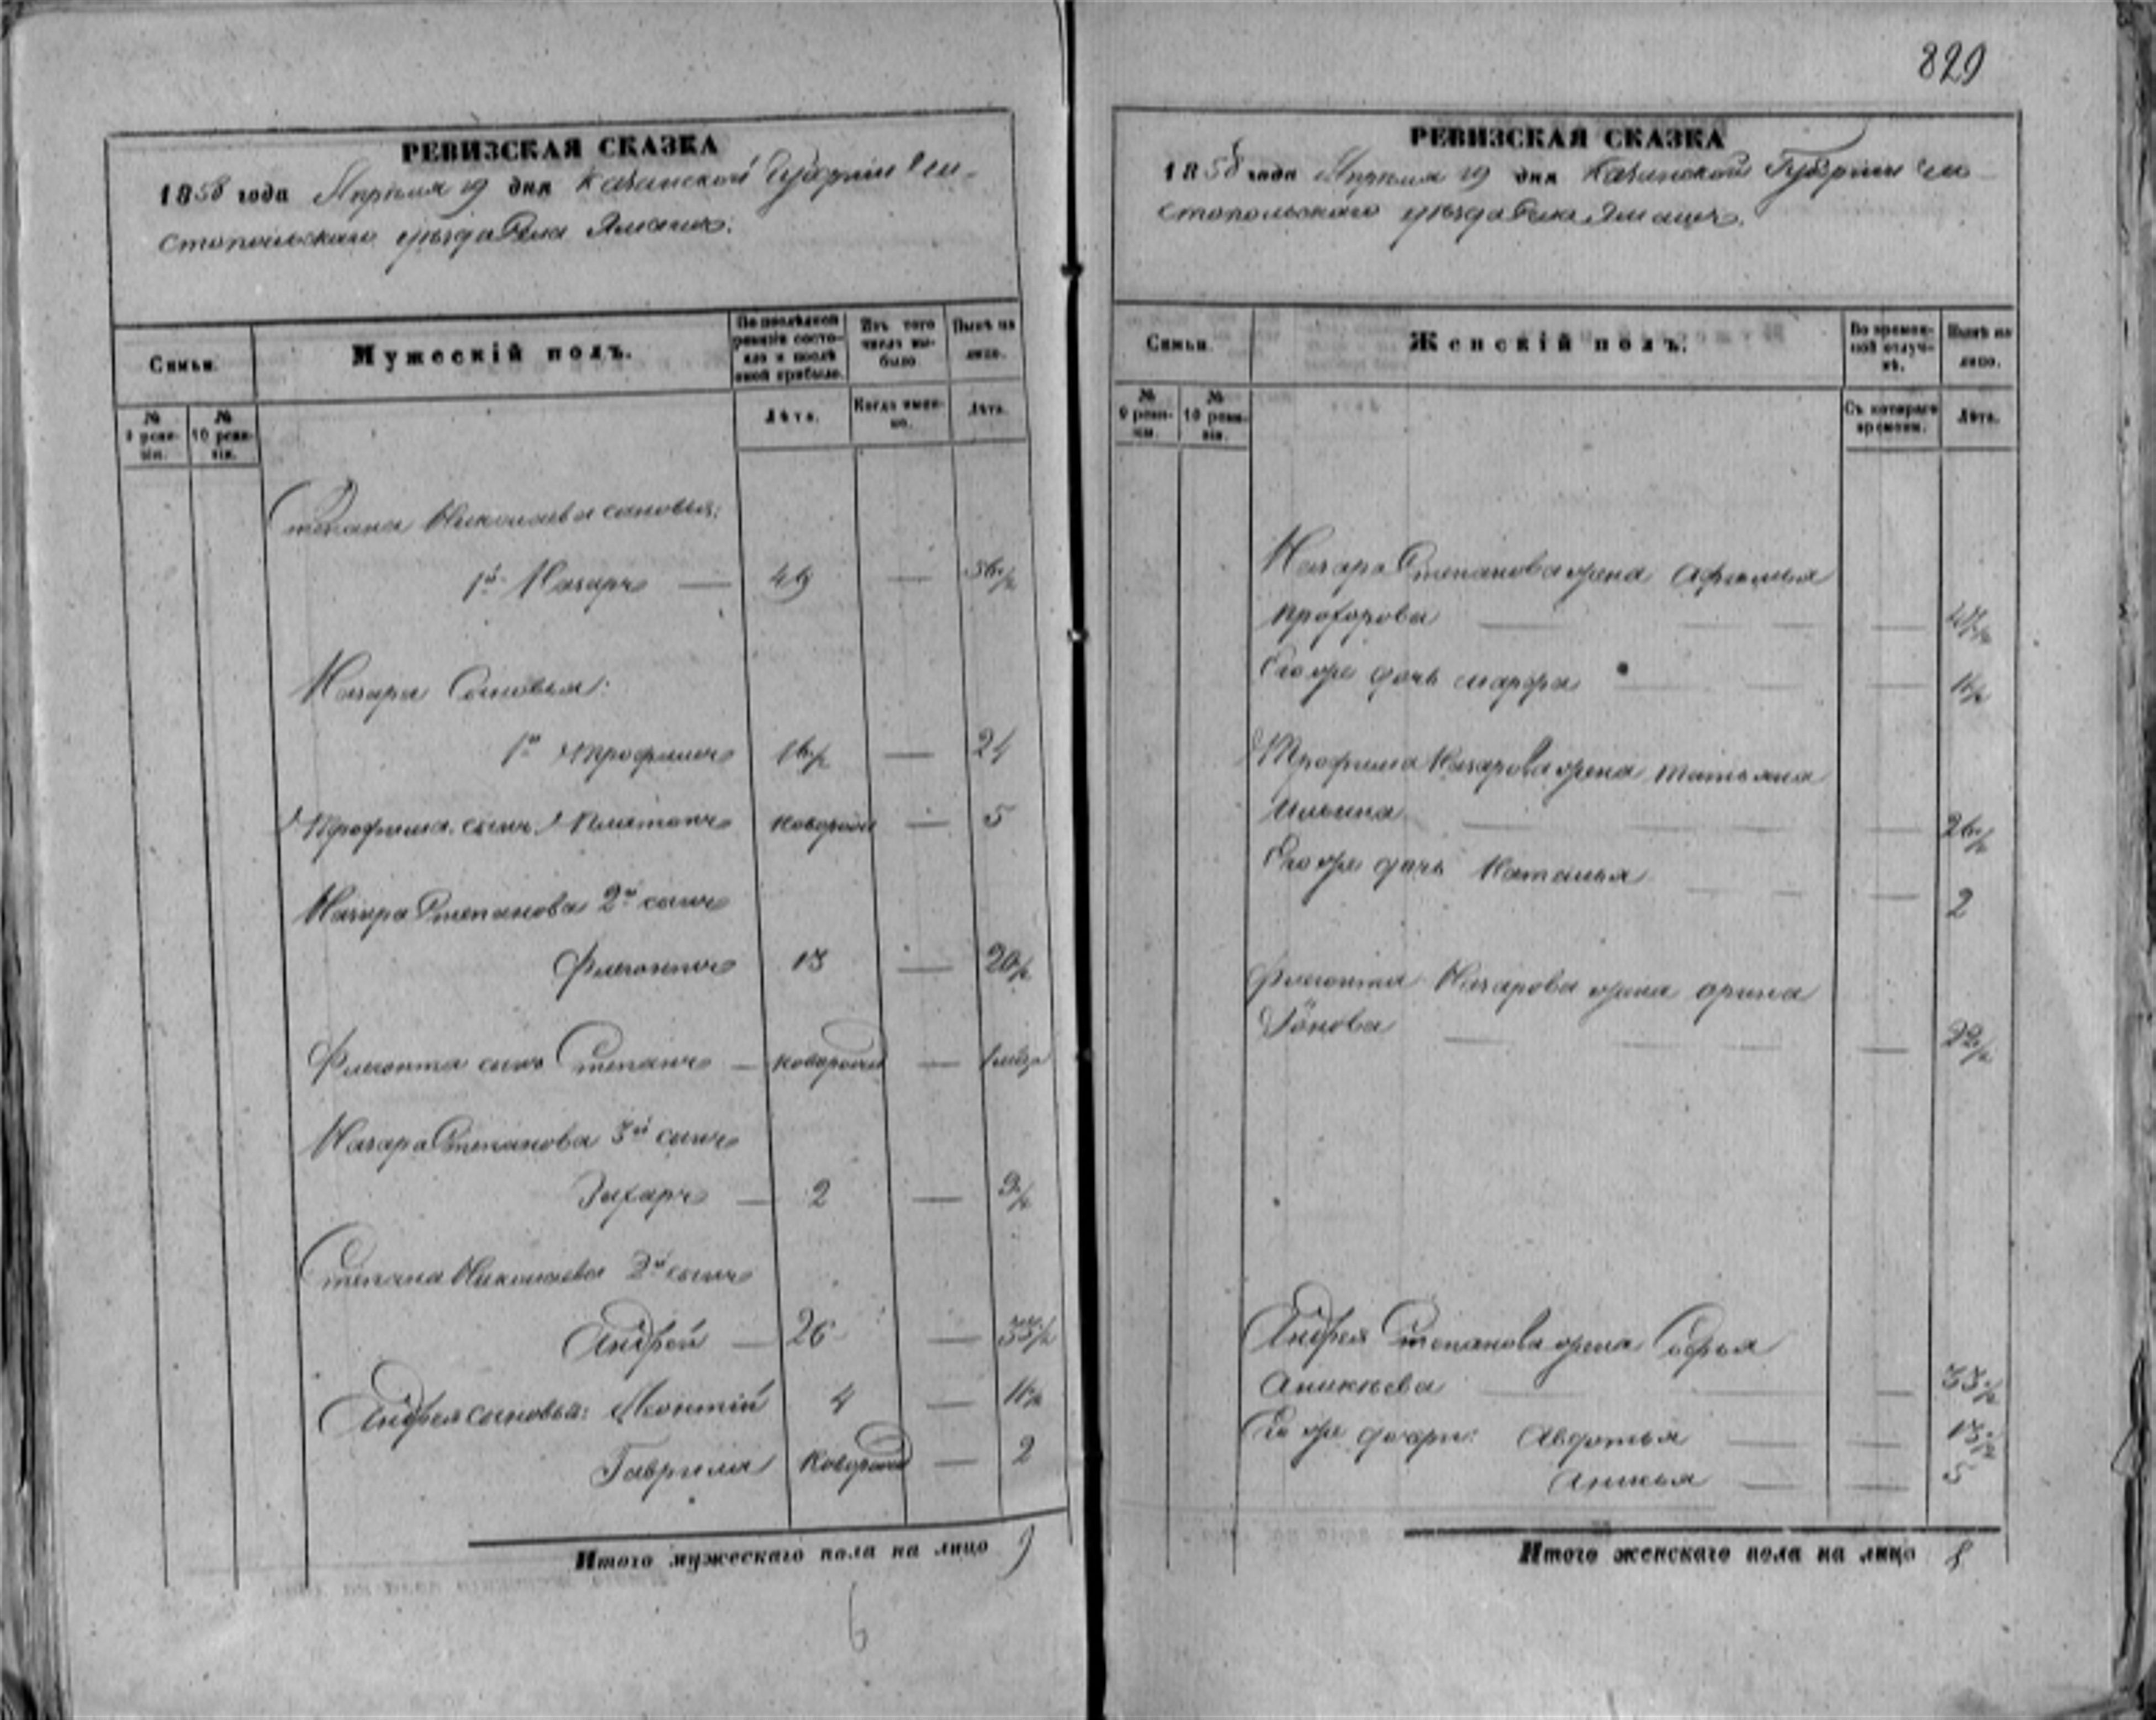 РЕВИЗСКАЯ СКАЗКА
1858 года Апреля 19 дня Казанской Губернии Чи-
стопольскаго уѣзда Села Ямашъ.
Семьи.
Мужескій полъ.
По послѣдней ревизіи состояло и послѣ оной прибыло.
Изъ того числа выбыло
Нынѣ на лицо.
№ 9 ревизіи.
№ 10 ревизіи.
Лѣта.
Когда именно.
Лѣта.
Степана Николаева сыновья:
1й Назаръ — 49 — 56½
Назара Сыновья:
1й Трофимъ 16½ — 24
Трофима сынъ Платонъ новорож — 5
Назара Степанова 2й сынъ
Филонтъ 13 — 20½
Филонта сынъ Степанъ — новорожд — 1 мѣц
Назара Степанова 3й сынъ
Захаръ — 2 — 9½
Степана Николаева 2й сынъ
Андрей — 26 — 33½
Андрея сыновья: Леонтій 4 — 11½
Гаврила новорожд — 2
Итого мужескаго пола на лицо 9
6
829
РЕВИЗСКАЯ СКАЗКА
1858 года Апреля 19 дня Казанской Губернии Чи-
стопольскаго уѣзда Села Ямашъ.
Семьи.
Женскій полъ.
Во временной отлучкѣ.
Нынѣ на лицо.
№ 9 ревизіи.
№ 10 ревизіи.
Съ котораго времени.
Лѣта.
Назара Степанова жена Афимья
Прохорова — —
Его же дочь Марфа — — 11½
Трофима Назарова жена Татьяна
Ильина — — 26½
Его же дочь Наталья — — 2
Филонта Назарова жена Орина
— — 22½
Андрея Степанова жена Софья
Аникиева — — 33½
Его же дочери: Авдотья — — 13½
Анисья — — 5
Итого женскаго пола на лицо 8